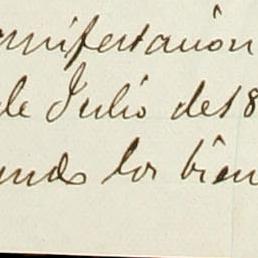 anifestación
de Julio de 18
ando los bien